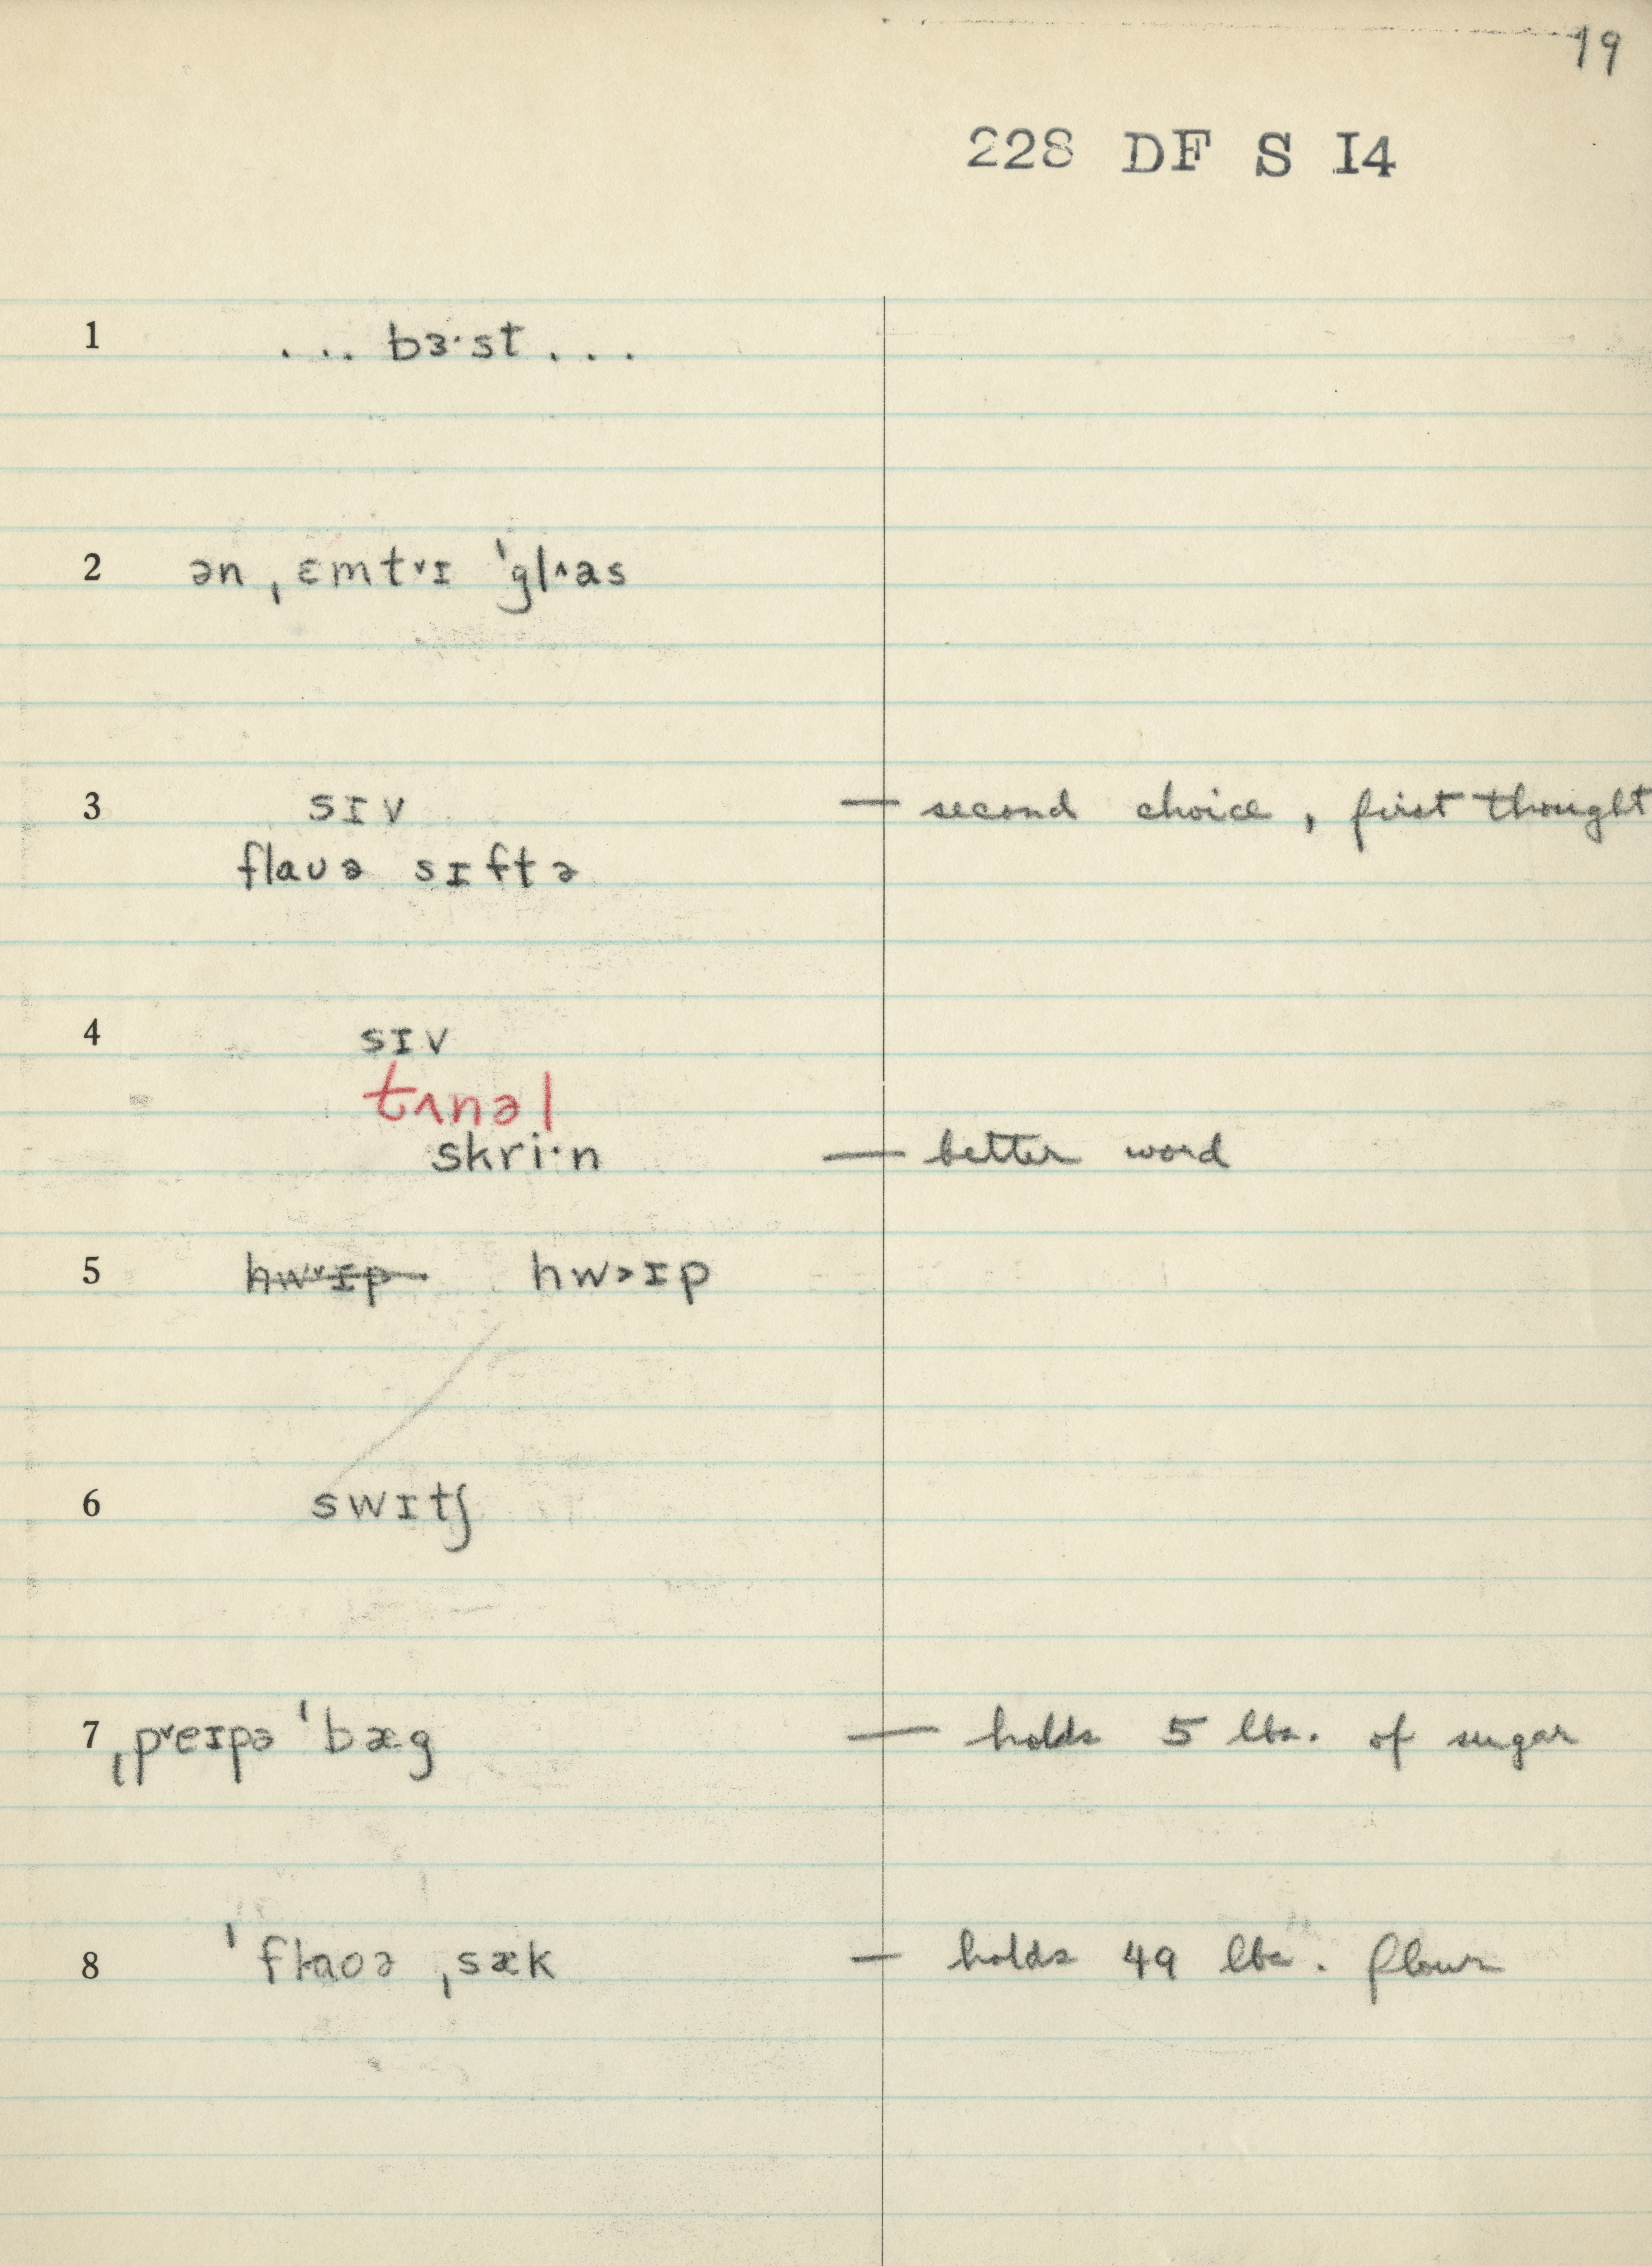 19
228 DF S I4
1 . . . bɜ·st . . .
2 ən ˌɛmt˅ɪ ˈgl˄as
3 sɪv — second choice, first thought
flaʊə sɪftə
4 sɪv
tʌnəl
skri·n — better word
5 hw˅ɪp hw˃ɪp
6 swɪtʃ
7 ˌp˅eɪpə ˈbæg — holds 5 lbs. of sugar
8 ˈflaoə ˌsæk — holds 49 lbs. flour